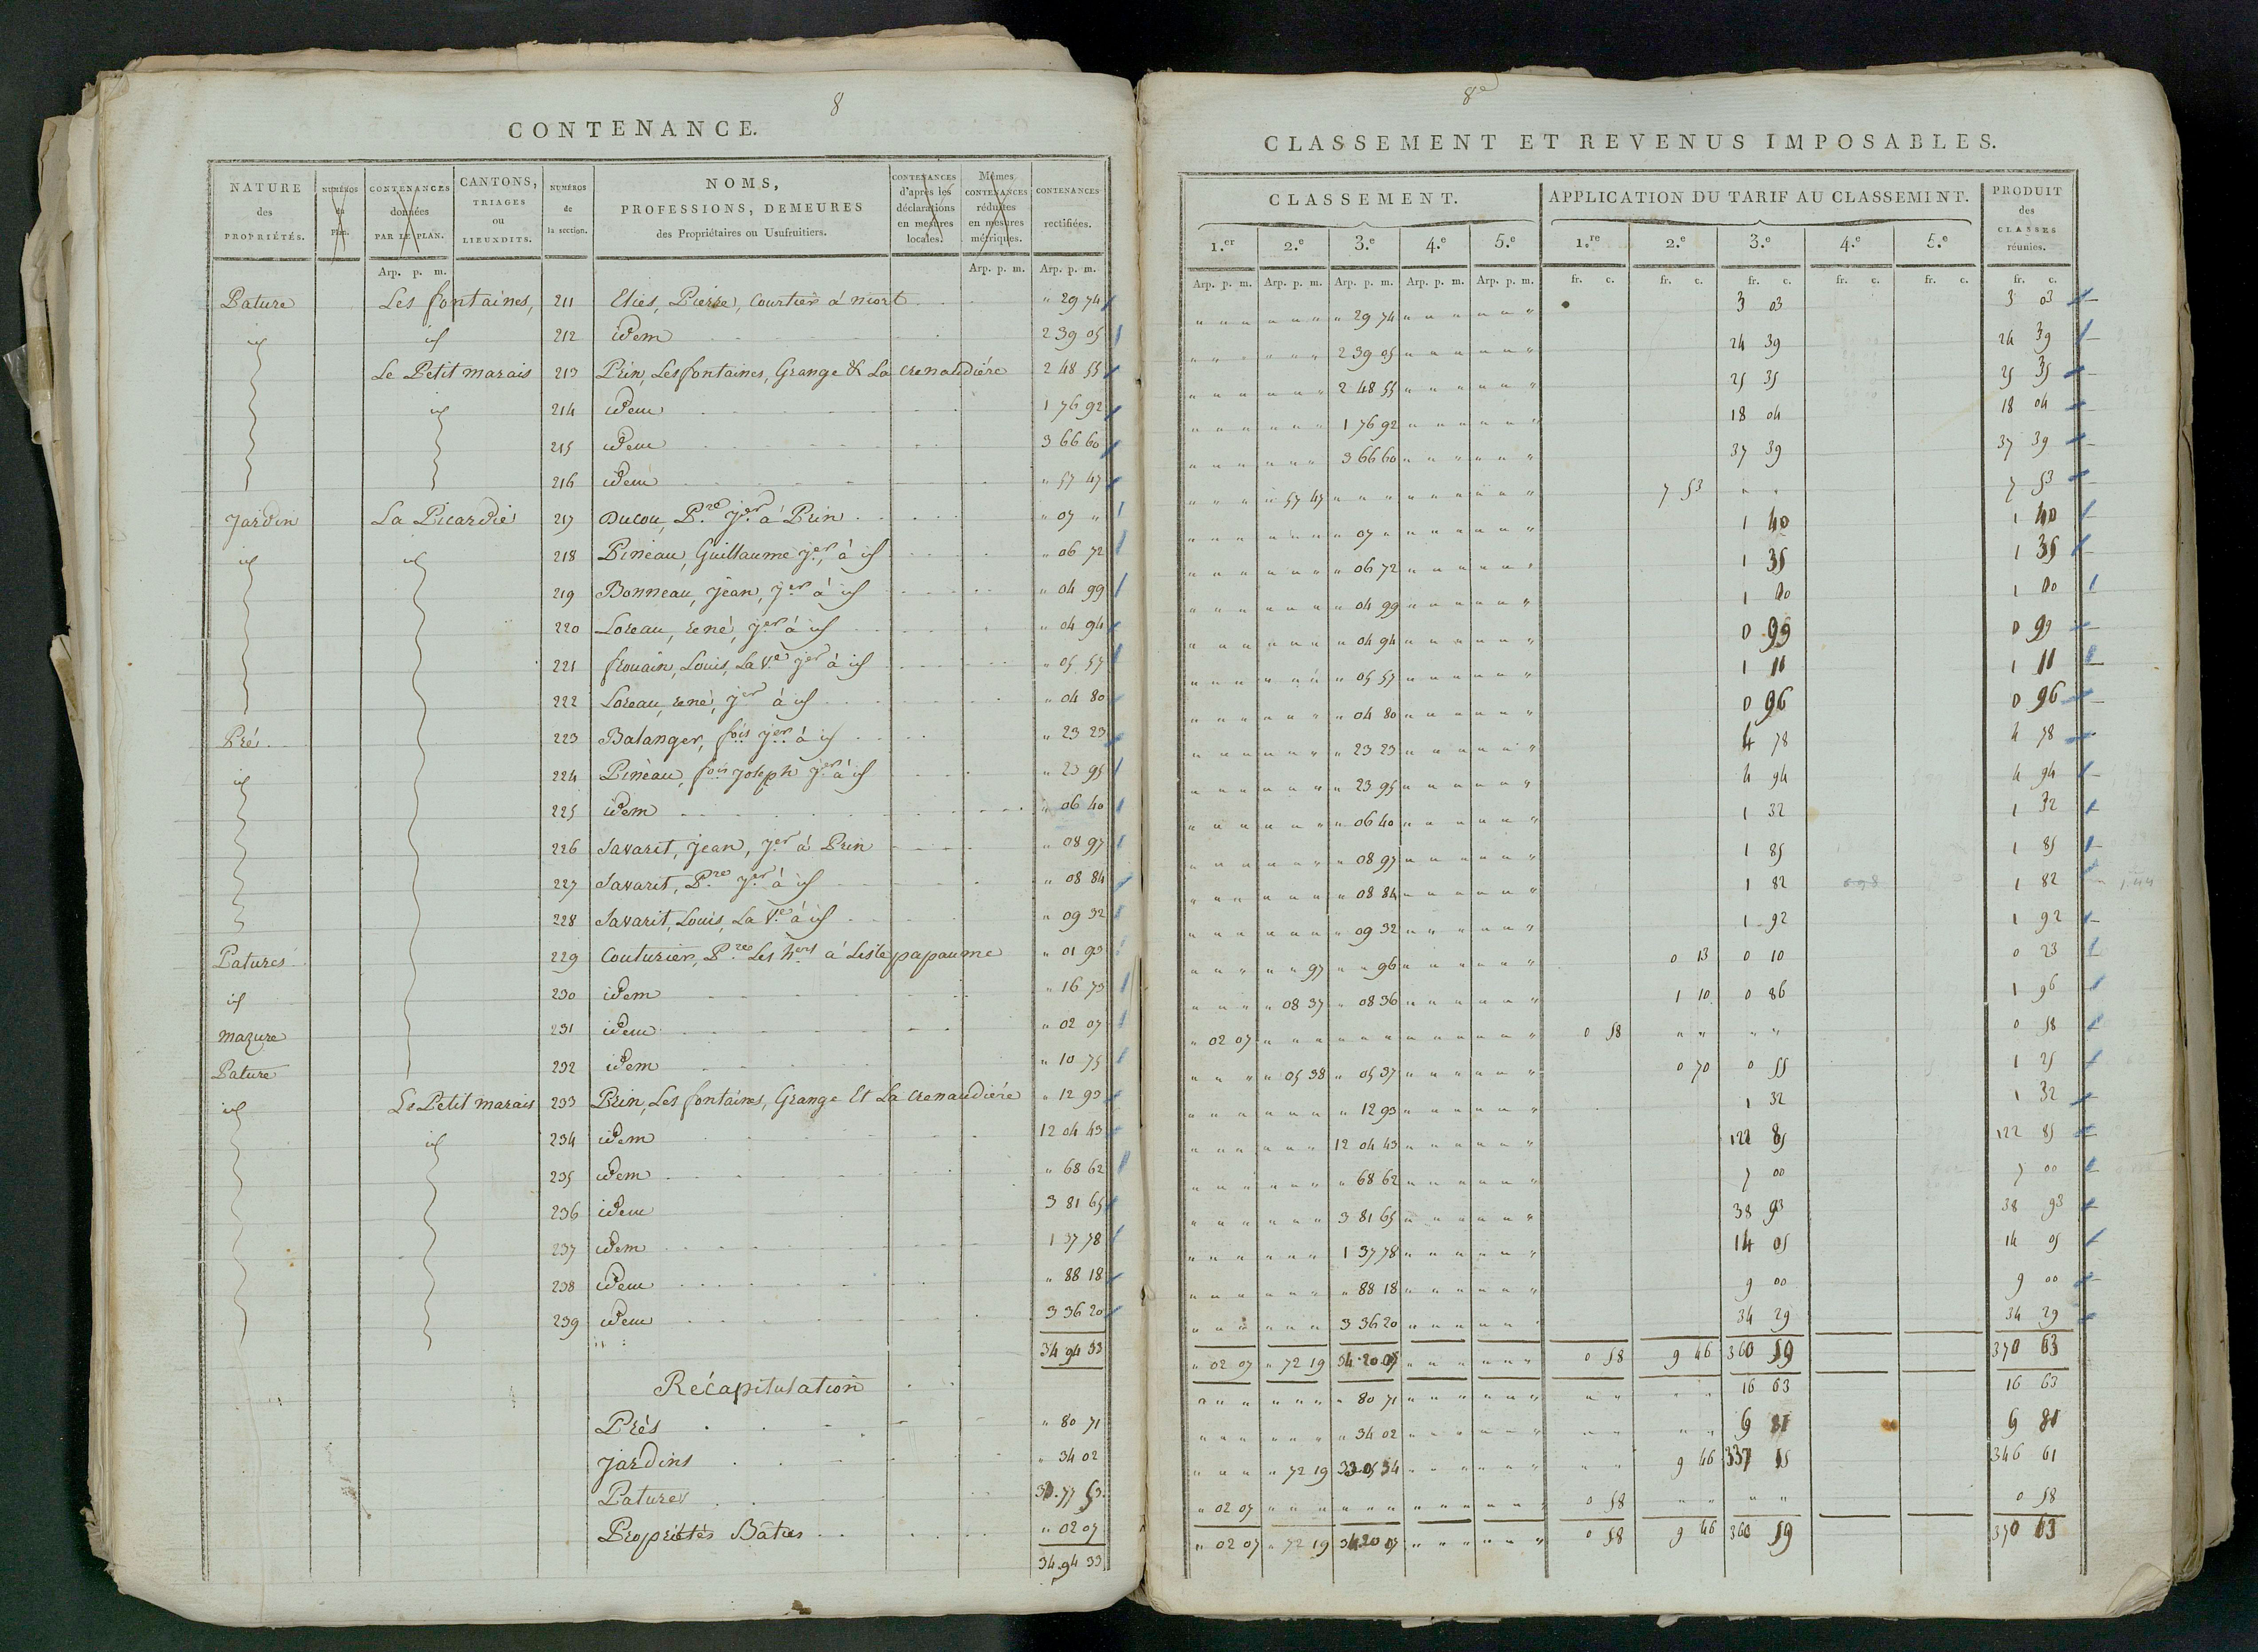 8
CONTENANCE.
NATURE des PROPRIÉTÉS. NUMÉROS du Plan. CONTENANCES données PAR LE PLAN. CANTONS, TRIAGES ou LIEUXDITS. NUMÉROS de la section. NOMS, PROFESSIONS, DEMEURES des Propriétaires ou Usufruitiers. CONTENANCES d'après les déclarations en mesures locales. Mêmes CONTENANCES réduites en mesures métriques. CONTENANCES rectifiées.
Arp. p. m. Arp. p. m. Arp. p. m.
Pature Les fontaines, 211 Eliés, Pierre, Courtier à niort " 29 74
id id 212 idem 2 39 05
Le Petit marais 213 Prin, Lesfontaines, Grange & La crenaudiére 2 48 55
id 214 idem 1 76 92
215 idem 3 66 60
216 idem " 57 47
Jardin La Picardie 217 Ducou, P.re j.er à Prin " 07 "
id id 218 Pineau, Guillaume j.er, à id " 06 72
219 Bonneau, jean, j.er à id " 04 99
220 Loreau, rené, j.er à id " 04 94
221 frouain, Louis, La V.e j.er à id " 05 57
222 Loreau, rené, j.er à id " 04 80
Pré 223 Balanger, fois j.er à id " 23 23
id 224 Pineau, fois joseph j.er à id " 23 95
225 idem " 06 40
226 Savarit, jean, j.er à Prin " 08 97
227 Savarit, P.re j.er à id " 08 84
228 Savarit, Louis, La V.e à id " 09 32
Patures 229 Couturier, P.re Les h.ers à Lisle papaume " 01 93
id 230 idem " 16 73
mazure 231 idem " 02 07
Pature 232 idem " 10 75
id Le Petit marais 233 Prin, Les fontaines, Grange Et La crenaudiére " 12 93
id 234 idem 12 04 43
235 idem " 68 62
236 idem 3 81 65
237 idem 1 37 78
238 idem " 88 18
239 idem 3 36 20
34 94 33
Récapitulation
Prés " 80 71
Jardins " 34 02
Patures 33.77 53
Propriétés Bâties " 02 07
34.94 33
8e
CLASSEMENT ET REVENUS IMPOSABLES.
CLASSEMENT. APPLICATION DU TARIF AU CLASSEMINT. PRODUIT des CLASSES réunies.
1.er 2.e 3.e 4.e 5.e 1.re 2.e 3.e 4.e 5.e
Arp. p. m. Arp. p. m. Arp. p. m. Arp. p. m. Arp. p. m. fr. c. fr. c. fr. c. fr. c. fr. c. fr. c.
" 29 74 3 03 3 03
2 39 05 24 39 24 39
2 48 55 25 35 25 35
1 76 92 18 04 18 04
3 66 60 37 39 37 39
" 57 47 7 53 " " 7 53
" 07 " 1 40 1 40
" 06 72 1 35 1 35
" 04 99 1 00 1 00
" 04 94 0 99 0 99
" 05 57 1 11 1 11
" 04 80 0 96 0 96
" 23 23 4 78 4 78
" 23 95 4 94 4 94
" 06 40 1 32 1 32
" 08 97 1 85 1 85
" 08 84 1 82 1 82
" 09 32 1 92 1 92
" " 97 " " 96 0 13 0 10 0 23
" 08 37 " 08 36 1 10 0 86 1 96
" 02 07 0 58 " " " " 0 58
" 05 38 " 05 37 0 70 0 55 1 25
" 12 93 1 32 1 32
12 04 43 122 85 122 85
" 68 62 7 00 7 00
3 81 65 38 93 38 93
1 37 78 14 05 14 05
" 88 18 9 00 9 00
3 36 20 34 29 34 29
" 02 07 " 72 19 34.20 07 0 58 9 46 360 59 370 63
" 80 71 " " " " 16 63 16 63
" 34 02 " " " " 6 81 6 81
" 72 19 33 05 34 " " 9 46 337 15 346 61
" 02 07 0 58 " " " " 0 58
" 02 07 " 72 19 34.20 07 0 58 9 46 360 59 370 63